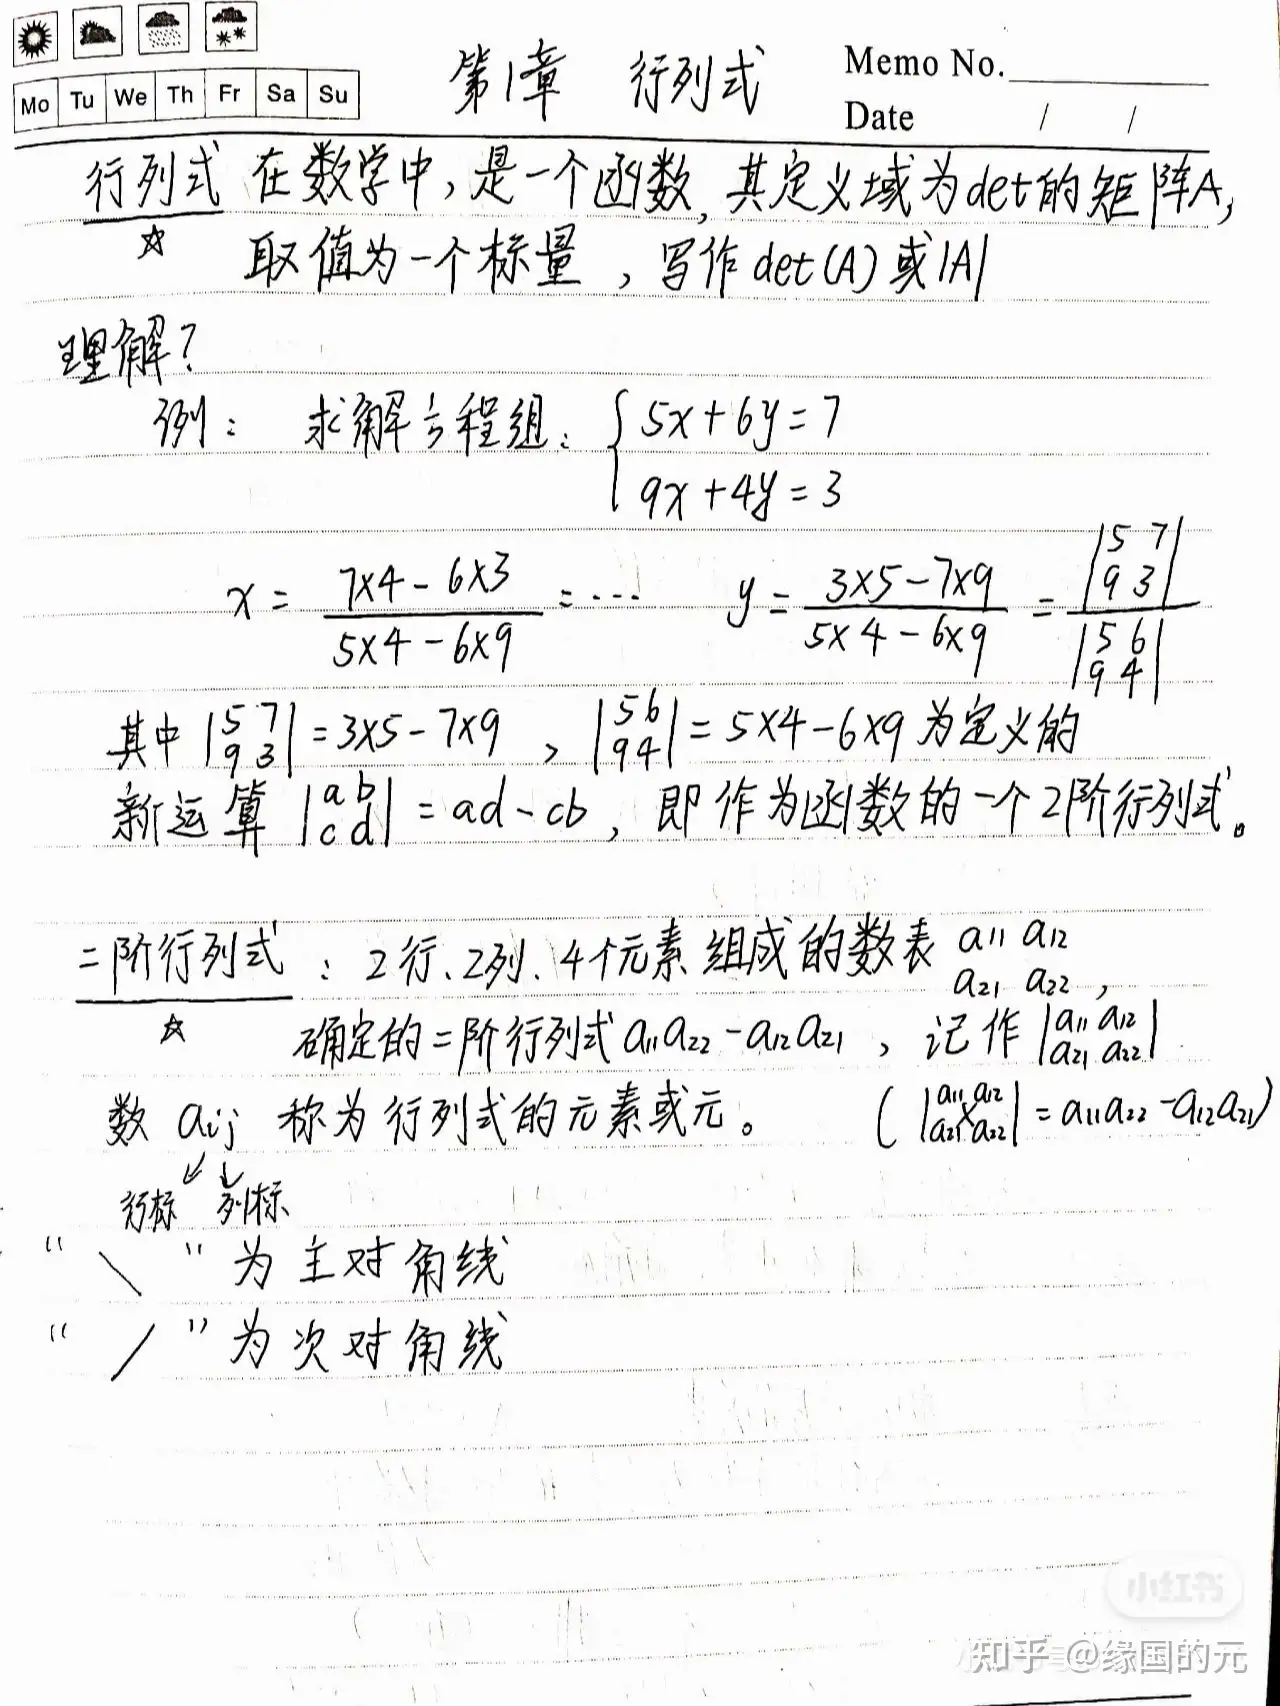 第1章 行列式
Memo No.
Date / /
Mo Tu We Th Fr Sa Su
行列式 在数学中,是一个函数,其定义域为det的矩阵A,
☆ 取值为一个标量,写作det(A)或|A|
理解?
例: 求解方程组: { 5x+6y=7
9x+4y=3
x = (7×4-6×3)/(5×4-6×9) = … y = (3×5-7×9)/(5×4-6×9) = |5 7; 9 3|/|5 6; 9 4|
其中 |5 7; 9 3| = 3×5-7×9 、 |5 6; 9 4| = 5×4-6×9 为定义的
新运算 |a b; c d| = ad-cb, 即作为函数的一个2阶行列式。
二阶行列式 : 2行、2列、4个元素组成的数表 a11 a12
a21 a22 ,
☆ 确定的二阶行列式a11a22-a12a21 , 记作 |a11 a12; a21 a22|
数 aij 称为行列式的元素或元。 (|a11 a12; a21 a22| = a11a22-a12a21)
↙ ↓
行标 列标
“ \ ” 为主对角线
“ / ” 为次对角线
小红书
知乎 @缘国的元